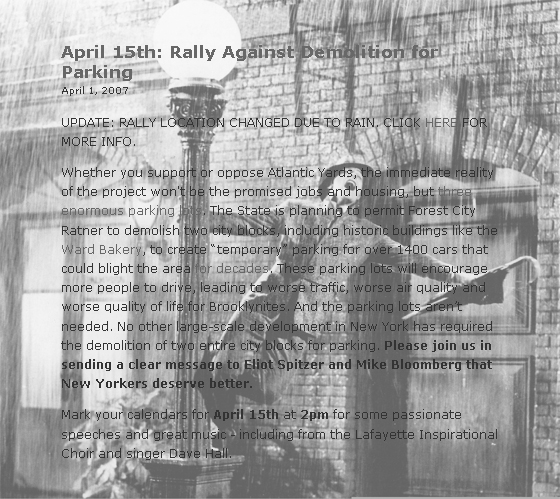 April 15th: Rally Against Demolition for
Parking
April 1, 2007
UPDATE: RALLY LOCATION CHANGED DUE TO RAIN. CLICK HERE FOR
MORE INFO.
Whether you support or oppose Atlantic Yards, the immediate reality
of the project won't be the promised jobs and housing, but three
enormous parking lots. The State is planning to permit Forest City
Ratner to demolish two city blocks, including historic buildings like the
Ward Bakery, to create “temporary” parking for over 1400 cars that
could blight the area for decades. These parking lots will encourage
more people to drive, leading to worse traffic, worse air quality and
worse quality of life for Brooklynites. And the parking lots aren't
needed. No other large-scale development in New York has required
the demolition of two entire city blocks for parking. Please join us in
sending a clear message to Eliot Spitzer and Mike Bloomberg that
New Yorkers deserve better.
Mark your calendars for April 15th at 2pm for some passionate
speeches and great music - including from the Lafayette Inspirational
Choir and singer Dave Hall.